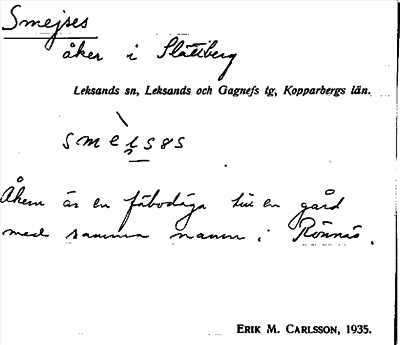 Smejses
åker i Slättberg
Leksands sn, Leksands och Gagnefs tg, Kopparbergs län.
Åkern är en fäbodäga till en gård
med samma namn i Rönnäs.
ERIK M. CARLSSON, 1935.